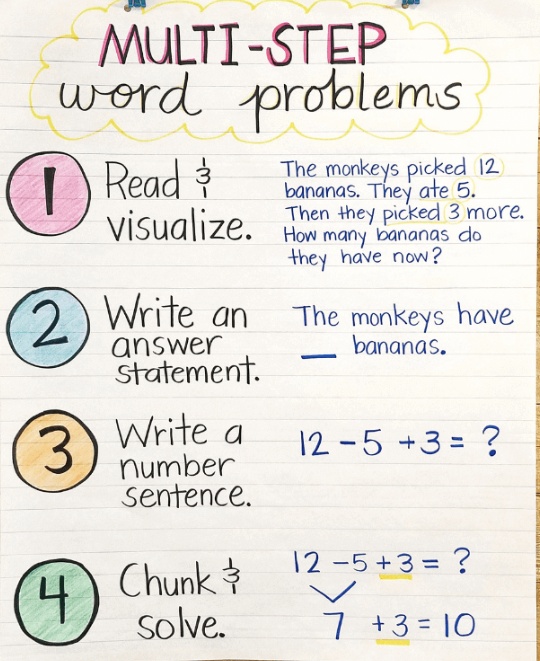 MULTI-STEP
word problems
1
Read &
visualize.
The monkeys picked 12
bananas. They ate 5.
Then they picked 3 more.
How many bananas do
they have now?
2
Write an
answer
statement.
The monkeys have
__ bananas.
3
Write a
number
sentence.
12 - 5 + 3 = ?
4
Chunk &
solve.
12 - 5 + 3 = ?
7 + 3 = 10